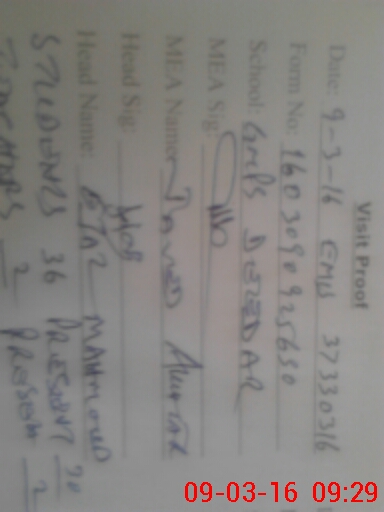 Visit Proof
Date: 9-3-16 EMIS 37330316
Form No: 1603090925650
School: GMPS DEREDAR
MEA Sig:
MEA Name: JAVED AKHTAR
Head Sig:
Head Name: EJAZ MAHMOOD
STUDENTS 36 PRESENT 30
TEACHERS 2 PRESENT 2
09-03-16 09:29